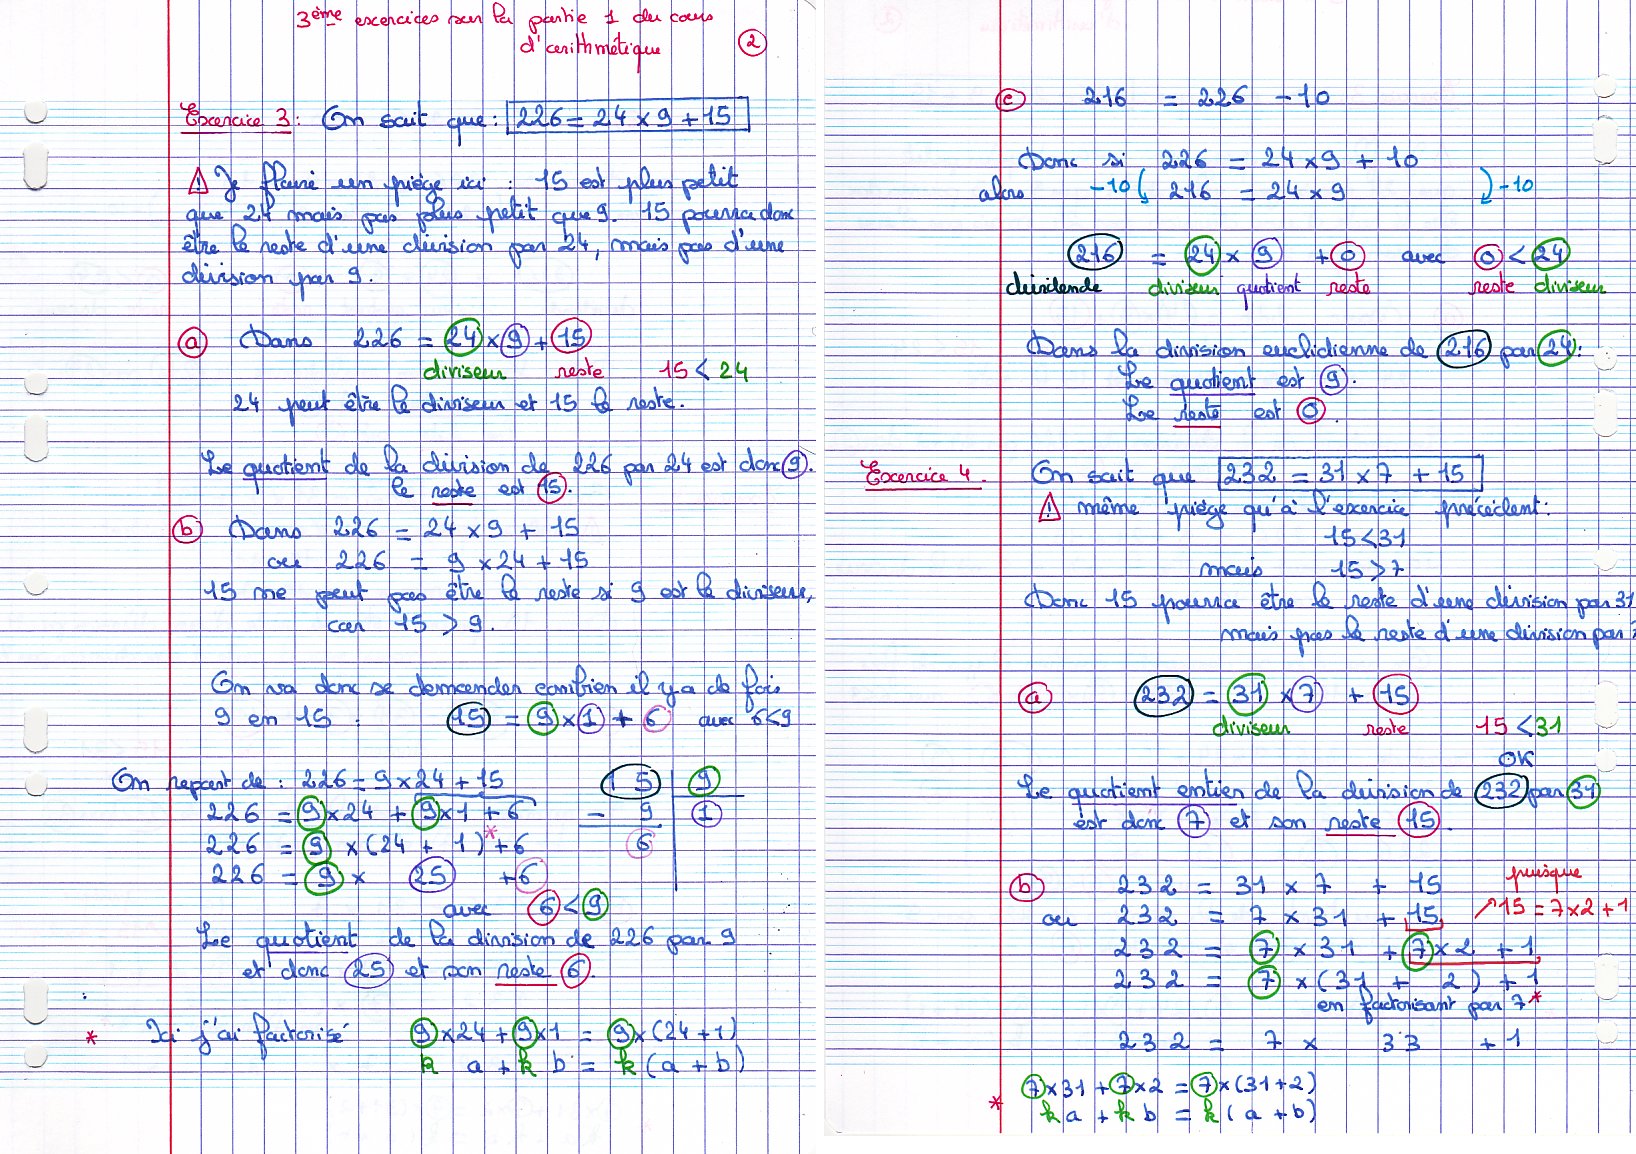 3ème exercices sur la partie 1 du cours
d'arithmétique ②
Exercice 3: On sait que: 226 = 24 × 9 + 15
⚠ Je flaire un piège ici : 15 est plus petit
que 24 mais pas plus petit que 9. 15 pourra donc
être le reste d'une division par 24, mais pas d'une
division par 9.
ⓐ Dans 226 = 24 × 9 + 15
diviseur reste 15 < 24
24 peut être le diviseur et 15 le reste.
Le quotient de la division de 226 par 24 est donc 9.
le reste est 15.
ⓑ Dans 226 = 24 × 9 + 15
ou 226 = 9 × 24 + 15
15 ne peut pas être le reste si 9 est le diviseur,
car 15 > 9.
On va donc se demander combien il y a de fois
9 en 15 : 15 = 9 × 1 + 6 avec 6<9
On repart de : 226 = 9 × 24 + 15
226 = 9 × 24 + 9 × 1 + 6
226 = 9 × (24 + 1)* + 6
226 = 9 × 25 + 6
avec 6 < 9
15 | 9
- 9 | 1
6
Le quotient de la division de 226 par 9
et donc 25 et son reste 6.
* Ici j'ai factorisé 9 × 24 + 9 × 1 = 9 × (24 + 1)
k a + k b = k (a + b)
ⓒ 216 = 226 - 10
Donc si 226 = 24 × 9 + 10
alors -10 216 = 24 × 9 -10
216 = 24 × 9 + 0 avec 0 < 24
dividende diviseur quotient reste reste diviseur
Dans la division euclidienne de 216 par 24:
Le quotient est 9.
Le reste est 0.
Exercice 4. On sait que 232 = 31 × 7 + 15
⚠ même piège qu'à l'exercice précédent:
15 < 31
mais 15 > 7
Donc 15 pourra être le reste d'une division par 31
mais pas le reste d'une division par 7
ⓐ 232 = 31 × 7 + 15
diviseur reste 15 < 31
OK
Le quotient entier de la division de 232 par 31
est donc 7 et son reste 15.
ⓑ 232 = 31 × 7 + 15 puisque
ou 232 = 7 × 31 + 15 ↗ 15 = 7 × 2 + 1
232 = 7 × 31 + 7 × 2 + 1
232 = 7 × (31 + 2) + 1
en factorisant par 7*
232 = 7 × 33 + 1
* 7 × 31 + 7 × 2 = 7 × (31 + 2)
k a + k b = k (a + b)